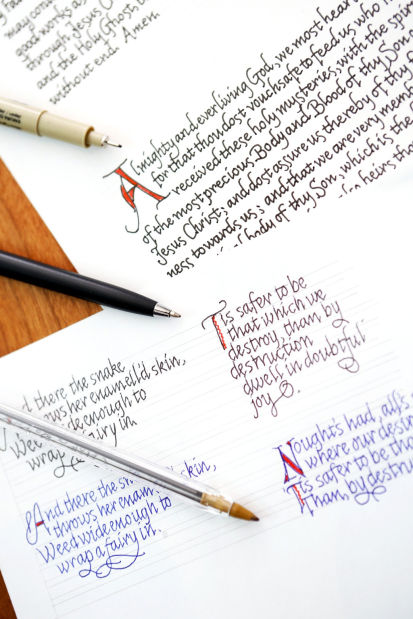 good works as
through Jesus
and the Holy Ghost,
without end. Amen
Almighty and everliving God, we most hear
for that thou dost vouchsafe to feed us, who h
received these holy mysteries, with the spiri
of the most precious Body and Blood of thy Son
Jesus Christ; and dost assure us thereby of thy f
ness towards us; and that we are very mem
body of thy Son, which is the
heirs th
Tis safer to be
that which we
destroy, than by
destruction
dwell in doubtful
joy
d there the snake
ows her enamell'd skin,
Weed wide enough to
wrap a fairy in
And there the sn skin,
throws her enam
Weed wide enough to
wrap a fairy in.
Nought's had, all's
where our desir
Tis safer to be tha
Than, by destro